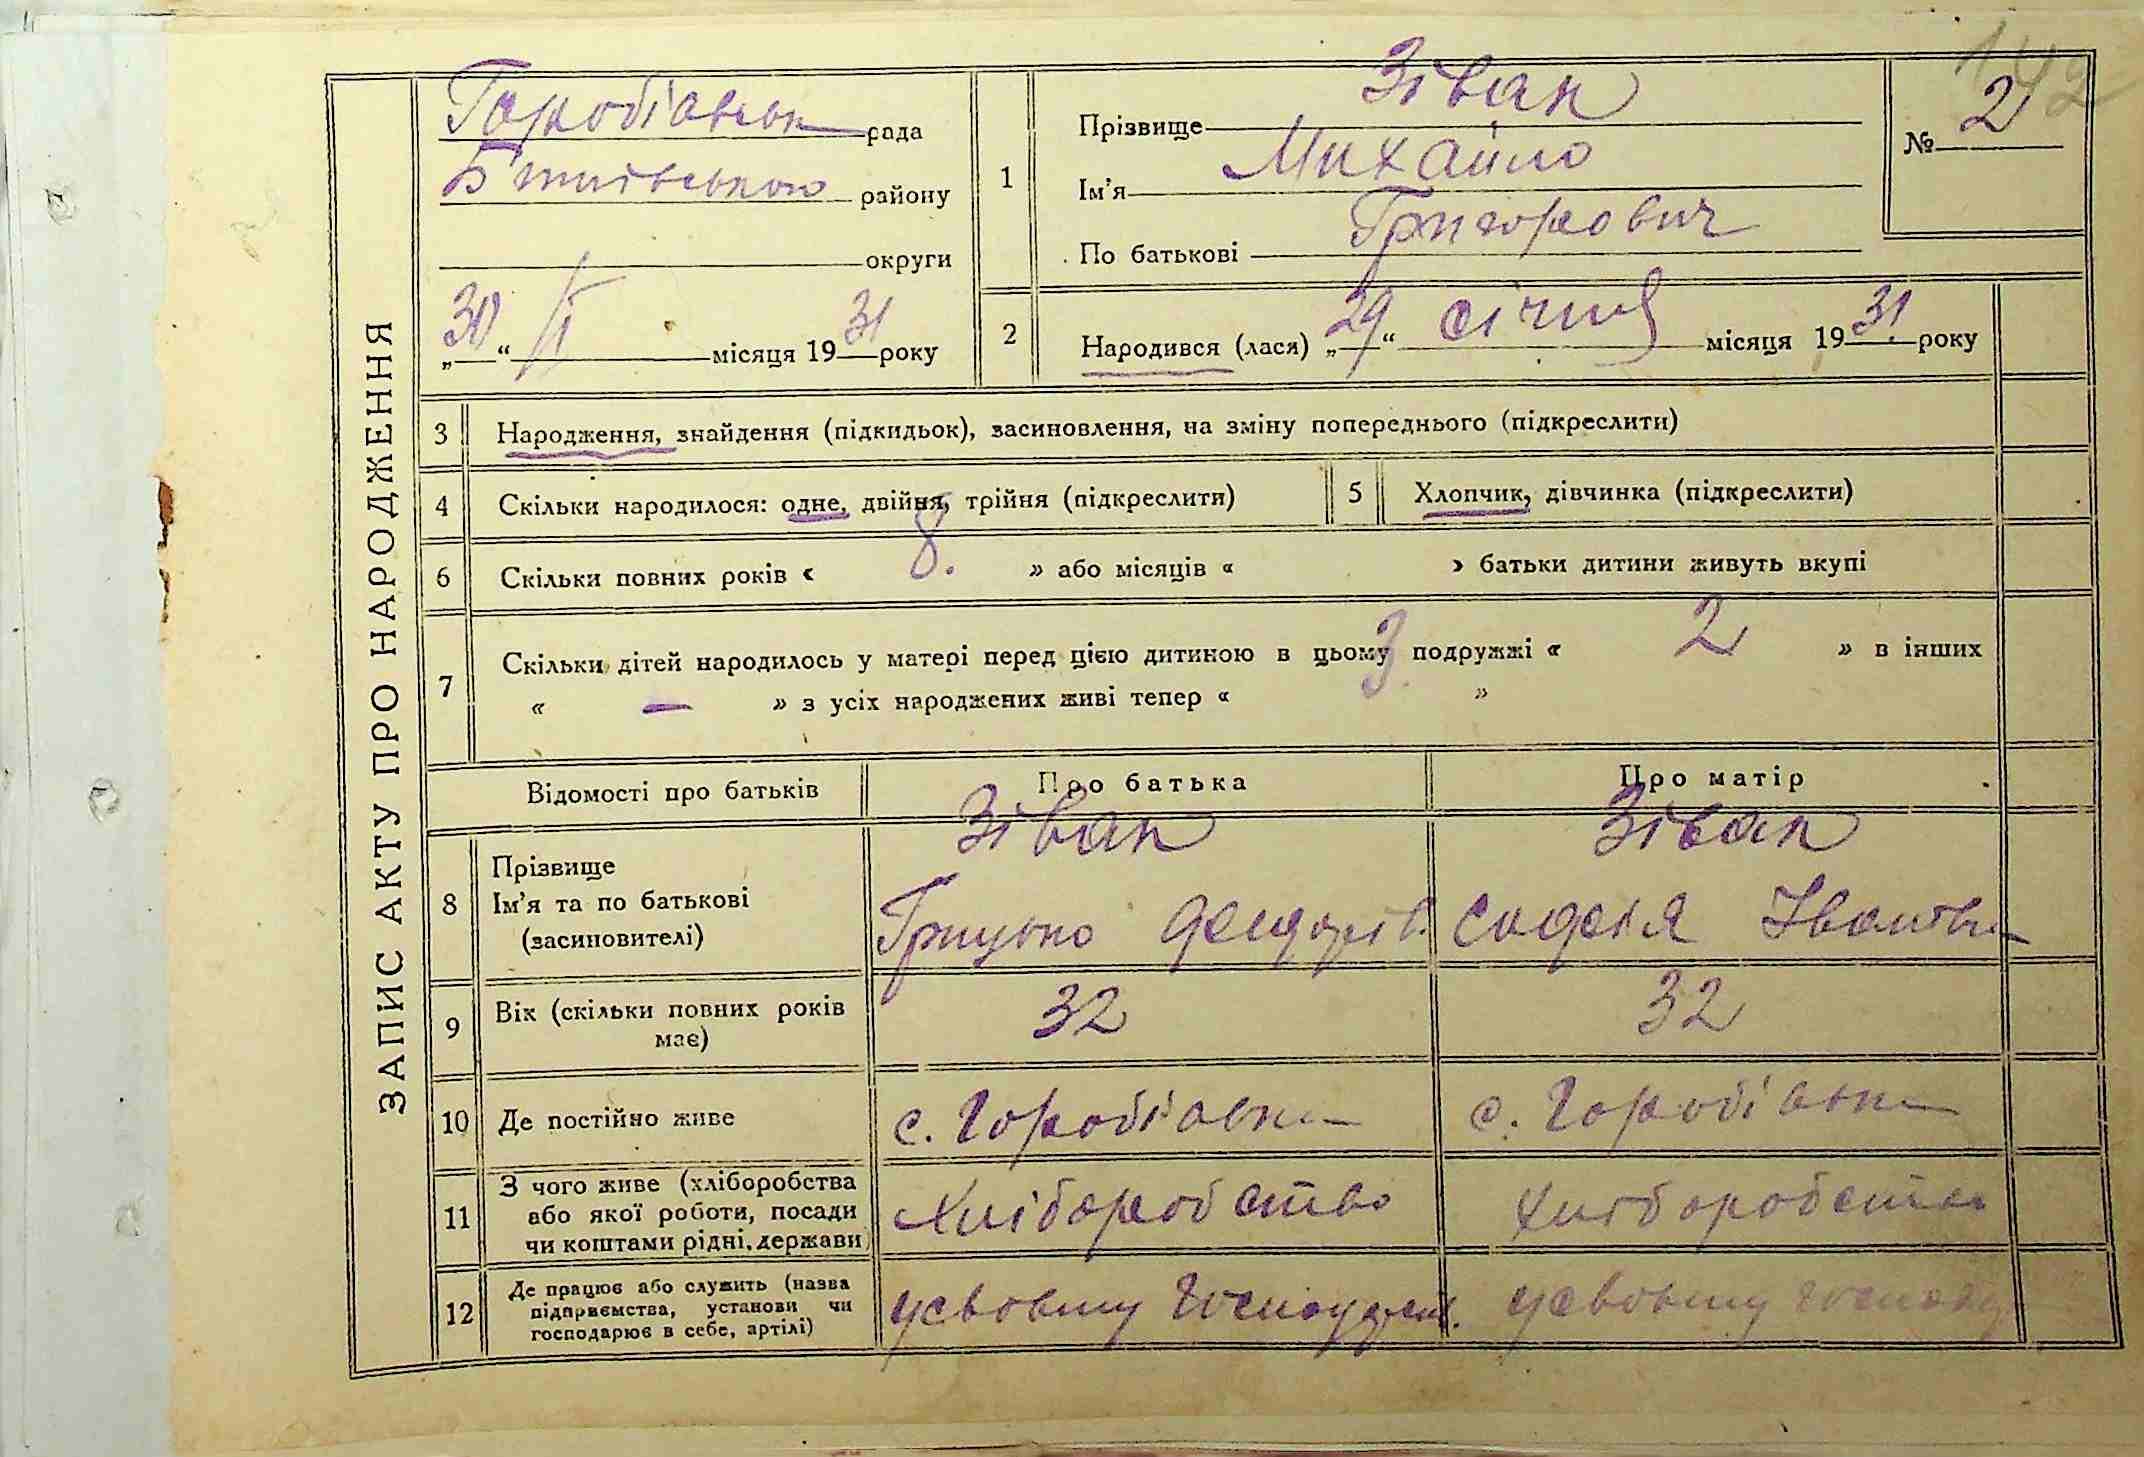 142
ЗАПИС АКТУ ПРО НАРОДЖЕННЯ
Горобіівськ рада
району
округи
„30“ I місяця 1931 року
1
Прізвище Зіван
Ім'я Михайло
По батькові Григорович
№ 2
2 Народився (лася) „29“ січня місяця 1931 року
3 Народження, знайдення (підкидьок), засиновлення, на зміну попереднього (підкреслити)
4 Скільки народилося: одне, двійня, трійня (підкреслити)
5 Хлопчик, дівчинка (підкреслити)
6 Скільки повних років « 8. » або місяців « » батьки дитини живуть вкупі
7 Скільки дітей народилось у матері перед цією дитиною в цьому подружжі « 2 » в інших
« — » з усіх народжених живі тепер « 3. »
Відомості про батьків Про батька Про матір
8 Прізвище
Ім'я та по батькові
(засиновителі)
Зіван
Грицько Федорів.
Зіван
Софія Іванівн
9 Вік (скільки повних років
має)
32
32
10 Де постійно живе
с. Горобіівк
с. Горобіівк
11 З чого живе (хліборобства
або якої роботи, посади
чи коштами рідні, держави)
Хліборобство
Хліборобство
12 Де працює або служить (назва
підприємства, установи чи
господарює в себе, артілі)
усвовму господар.
усвовму господ